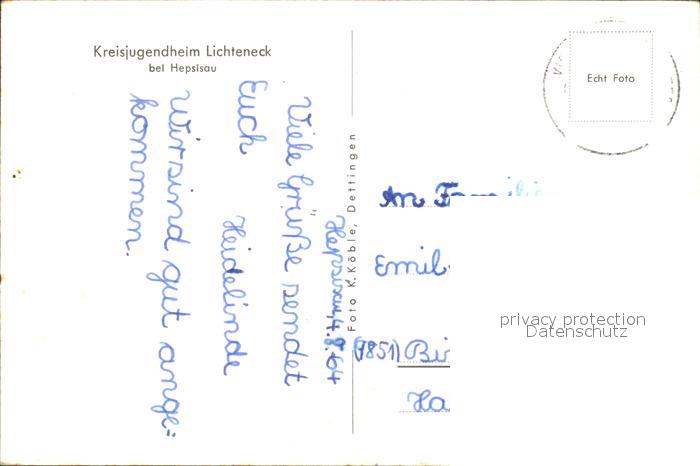 Kreisjugendheim Lichteneck
bei Hepsisau
Hepsisau, 4.8.64
Viele Grüße sendet
Euch Heidelinde
Wir sind gut ange=
kommen.
Foto K.Köble, Dettingen
Echt Foto
An Familie
Emil
(7851) Bi
Ha
privacy protection
Datenschutz